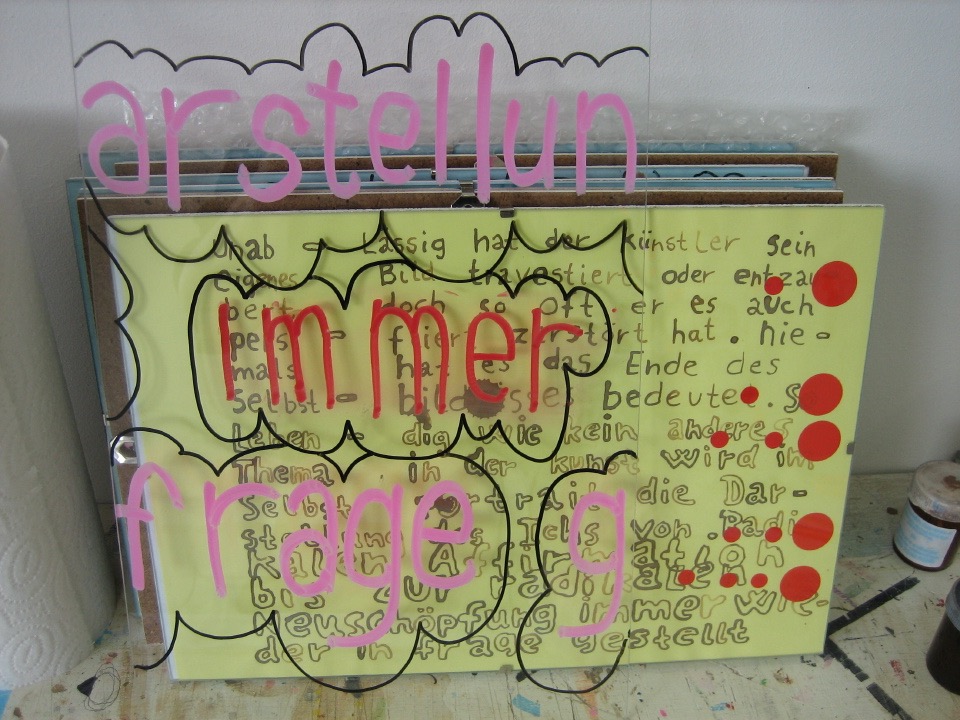 arstellun
immer
frage g
unab - Lässig hat der künstler sein
eigenes Bild travestiert oder entzau
bert doch so oft er es auch
pers - zerstört hat. nie -
mals hat es das Ende des
Selbst - bedeutet. S
Leben - dig wie kein anderes
Thema in der kunst wird im
Selbst die Dar-
Ichs von Radi
kalen Affirmation
bis zur radikalen
neuschöpfung immer wie-
der in frage gestellt